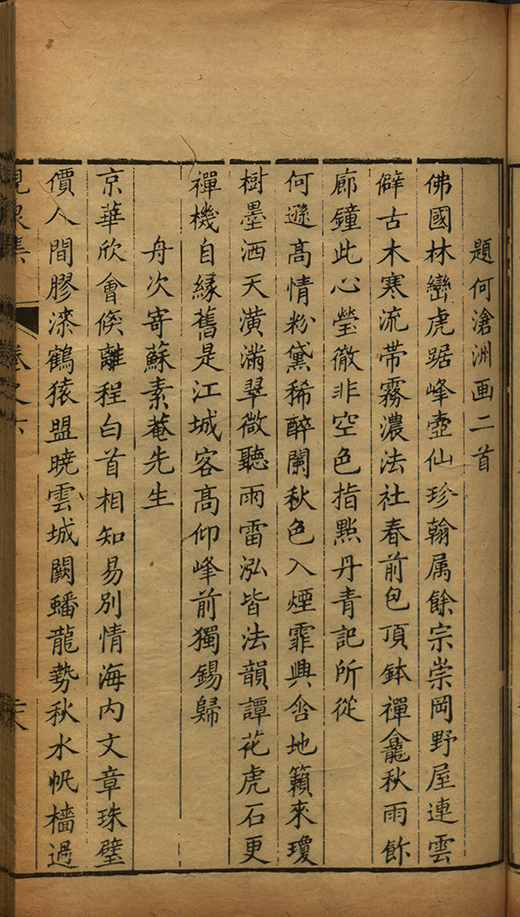 題何滄洲画二首
佛國林巒虎踞峰壺仙珍翰属餘宗崇岡野屋連雲
僻古木寒流帯霧濃法社春前包頂鉢禪龕秋雨飭
廊鐘此心瑩徹非空色指㸃丹青記所從
何遜髙情粉黛稀醉闌秋色入煙霏興含地籟來瓊
樹墨洒天潢滿翠微聽雨雷泓皆法韻譚花虎石更
禪機自縁舊是江城客髙仰峰前獨錫歸
舟次寄蘇素菴先生
京華欣會倐離程白首相知易別情海内文章珠璧
價人間膠漆鶴猿盟暁雲城闕蟠龍勢秋水帆檣過
集 卷之六